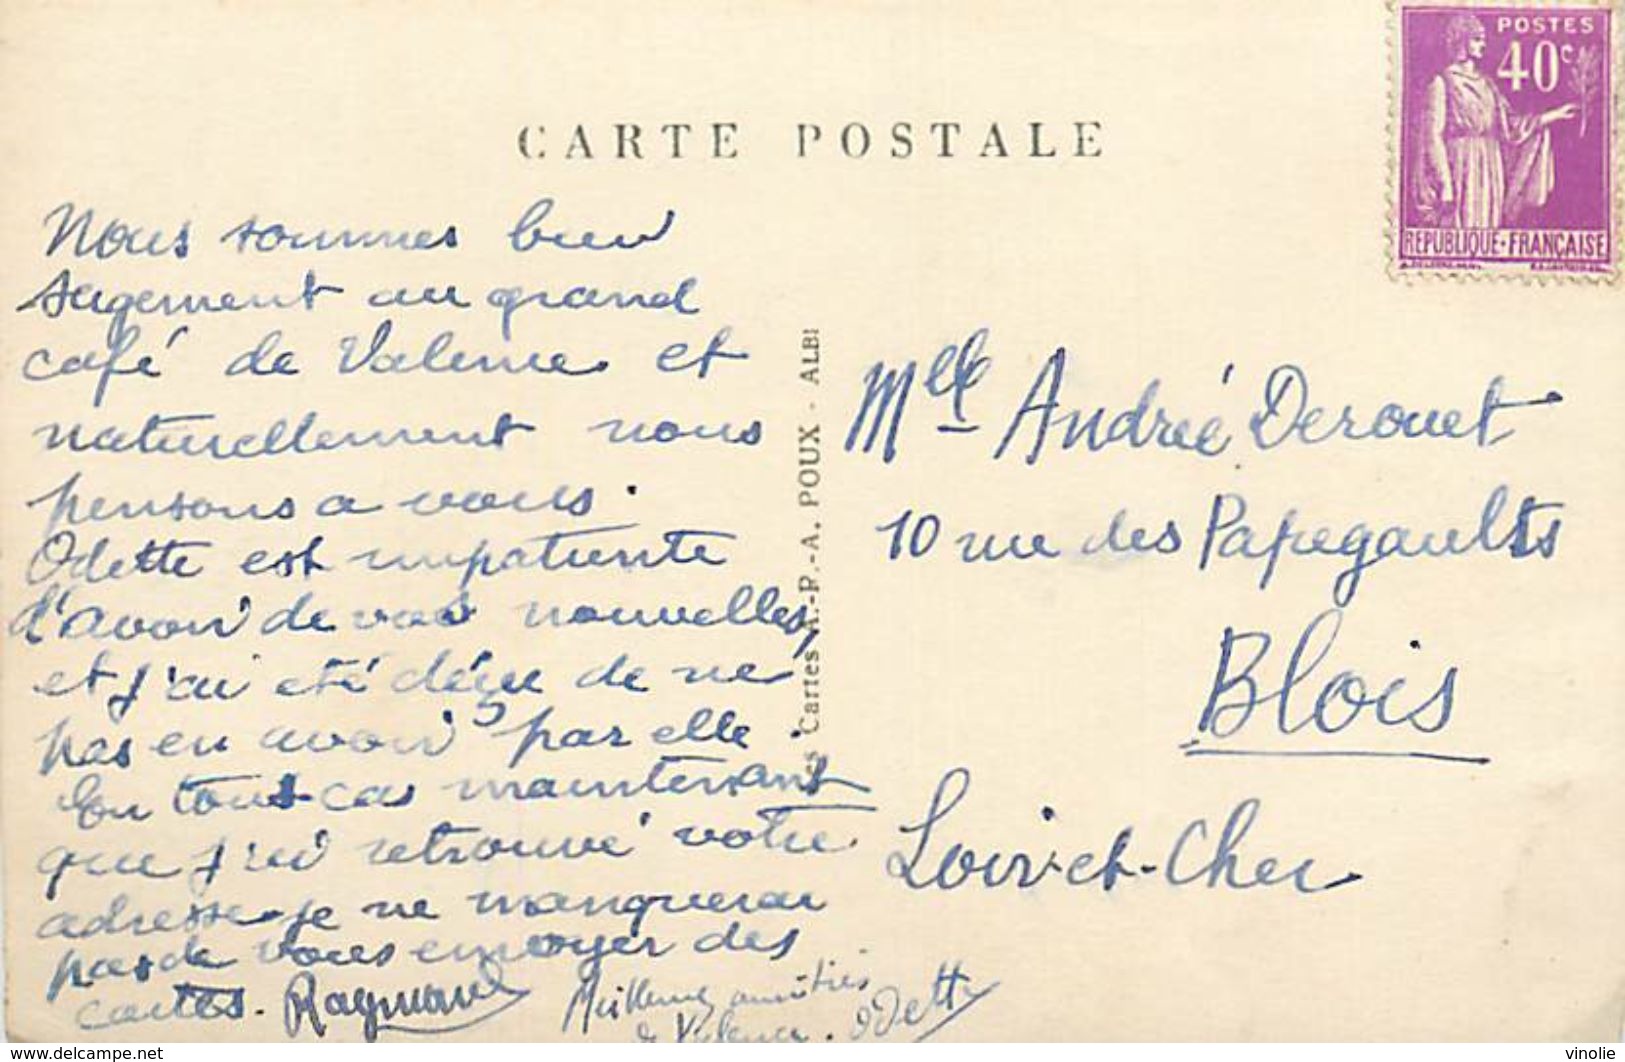 POSTES
40c
REPUBLIQUE·FRANÇAISE
CARTE POSTALE
Nous sommes bien
sagement au grand
café de Valence et
naturellement nous
pensons a vous.
Odette est impatiente
d'avoir de vos nouvelles,
et j'ai été déçu de ne
pas en avoir par elle.
En tous cas maintenant
que j'ai retrouvé votre
adresse je ne manquerai
pas de vous envoyer des
cartes. Raymond
Meilleures amitiés
de Valence. Odette
Les Cartes A.-P.-A. POUX - ALBI
Mlle Andrée Derouet
10 rue des Papegaults
Blois
Loir-et-Cher
https://www.delcampe.net
vinolie